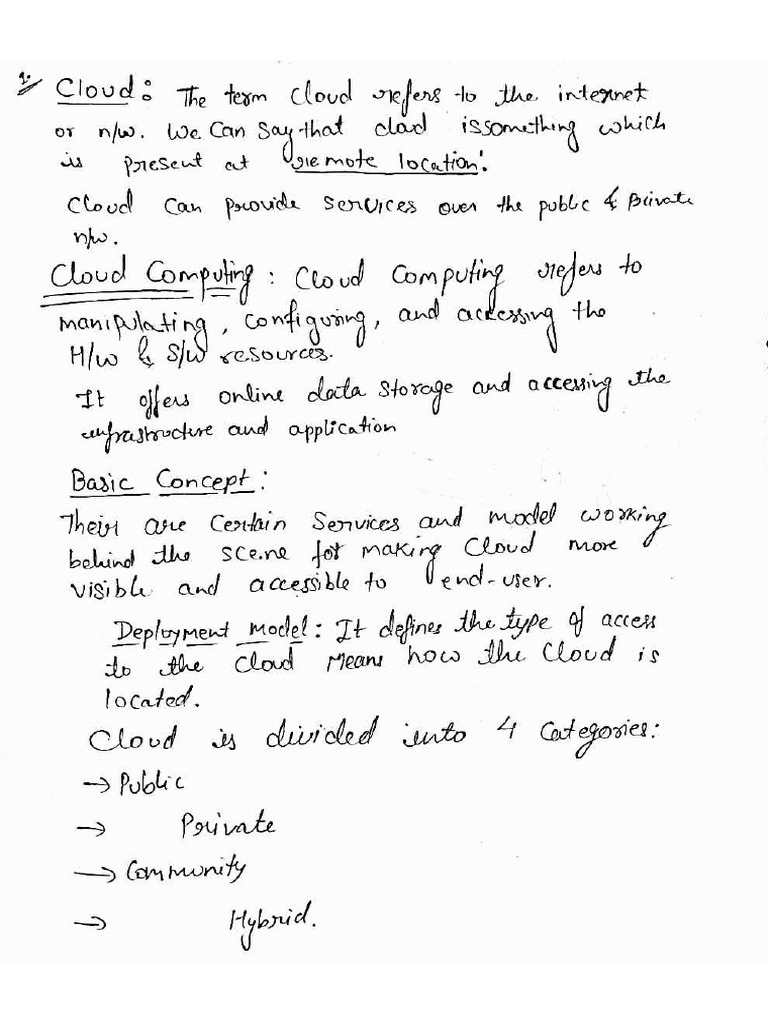 1. Cloud: The term cloud refers to the internet
or n/w. We can say that cloud is something which
is present at remote location.
Cloud can provide services over the public & private
n/w.
Cloud Computing: Cloud computing refers to
manipulating, configuring, and accessing the
H/w & S/w resources.
It offers online data storage and accessing the
infrastructure and application
Basic Concept:
Their are certain services and model working
behind the scene for making cloud more
visible and accessible to end-user.
Deployment model: It defines the type of access
to the cloud means how the cloud is
located.
Cloud is divided into 4 categories:
→ Public
→ Private
→ Community
→ Hybrid.